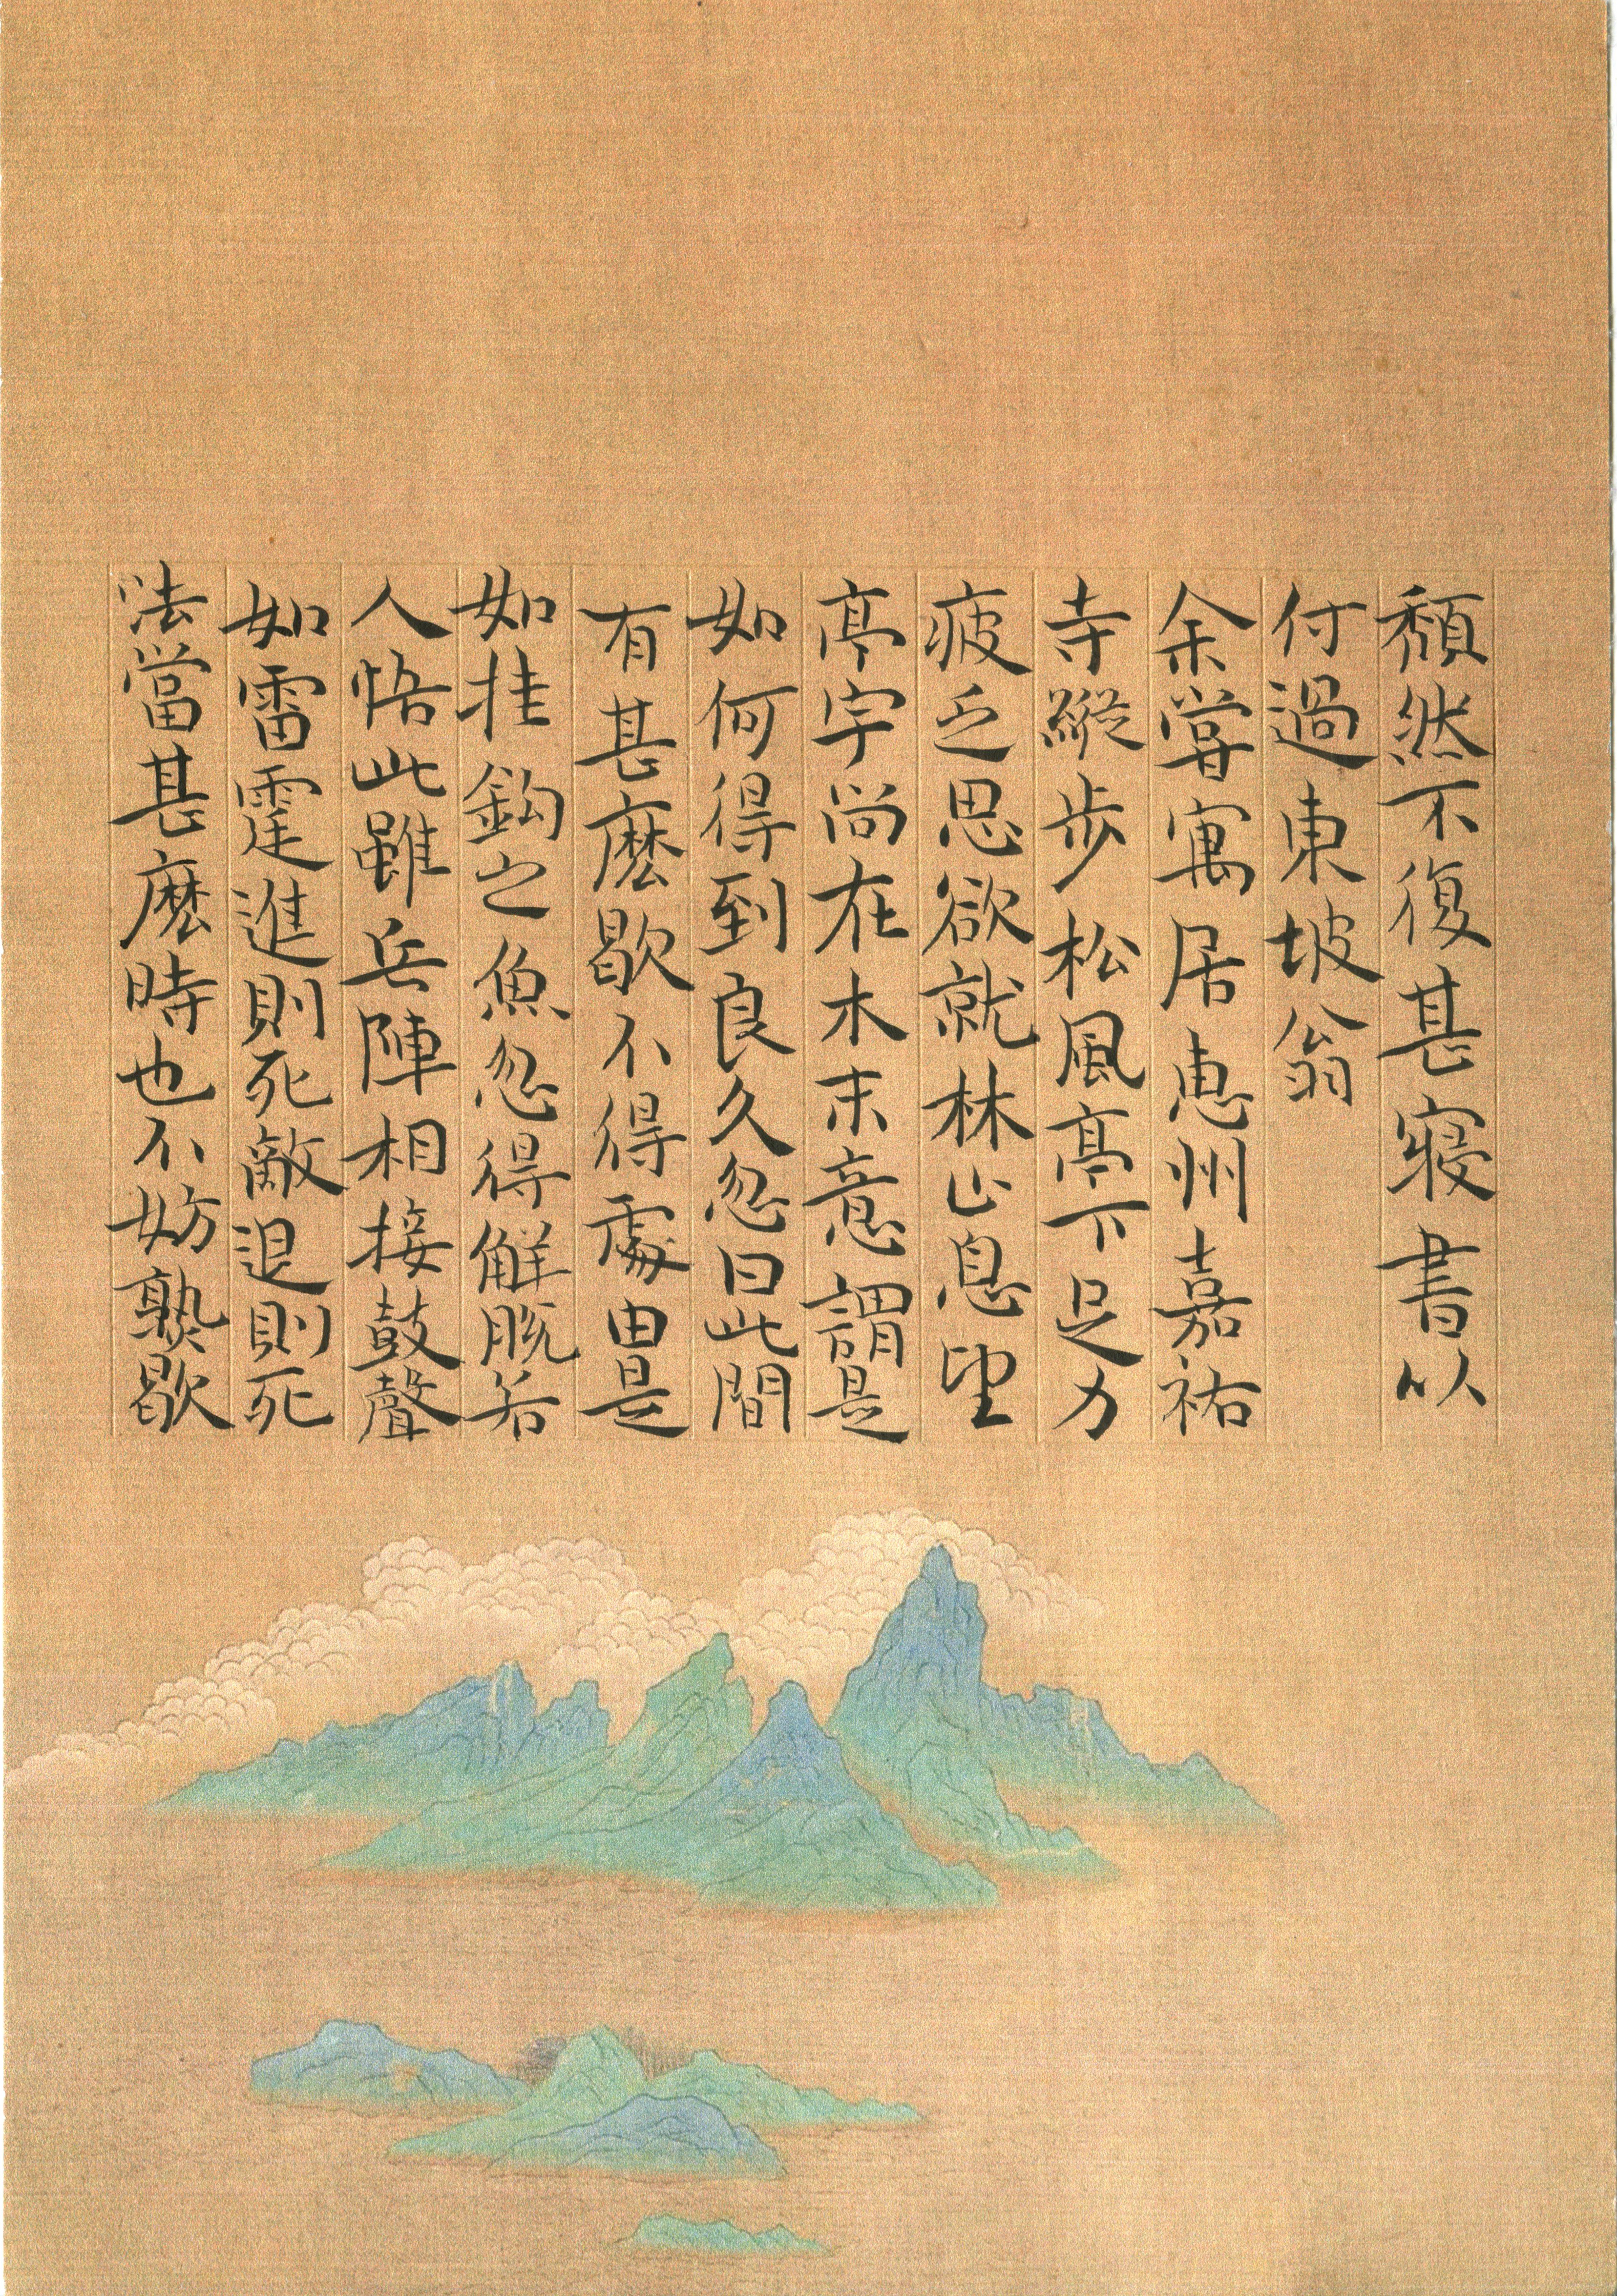 頽然不復甚寢書以
付過東坡翁
余嘗寓居惠州嘉祐
寺縱步松風亭下足力
疲乏思欲就林止息望
亭宇尚在木末意謂是
如何得到良久忽曰此間
有甚麽歇不得處由是
如挂鈎之魚忽得解脫若
人悟此雖兵陣相接鼓聲
如雷霆進則死敵退則死
法當甚麽時也不妨熟歇